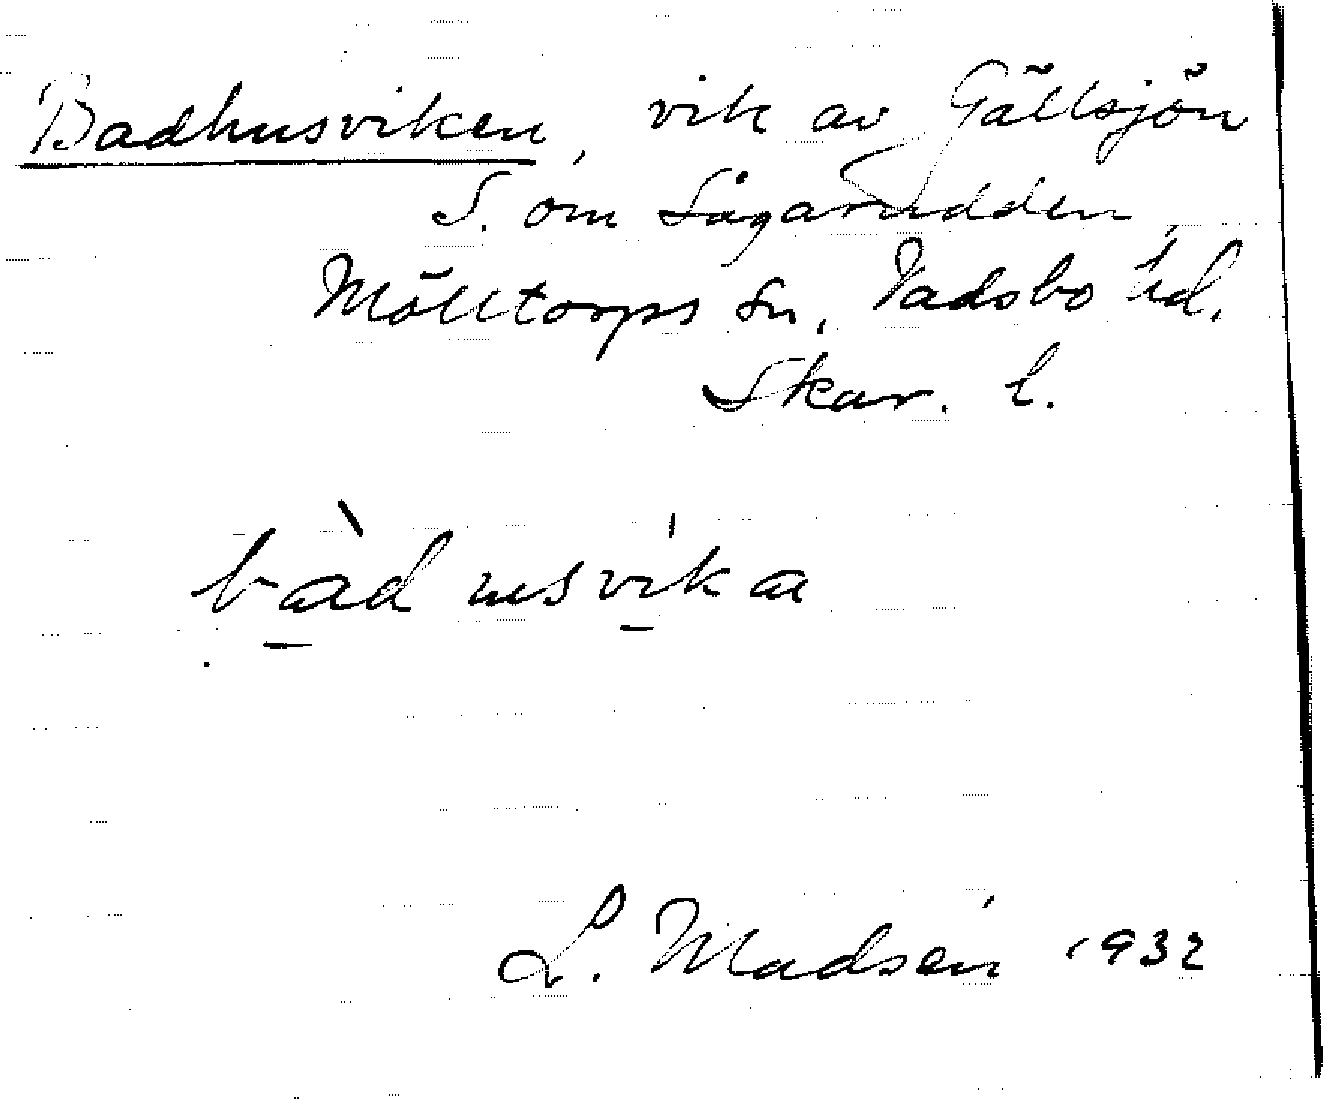 Badhusviken, vik av Gällsjön
S. om Sågarudden,
Mölltorps sn, Vadsbo hd.
Skar. l.
bàd usvíka
L. Madsén 1932